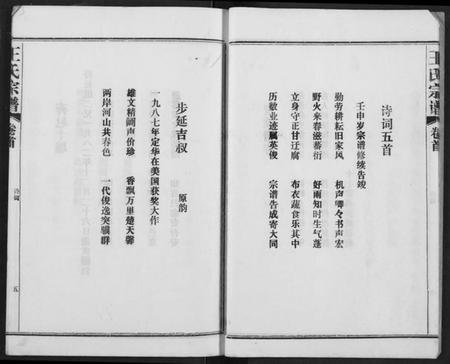 王氏宗谱
卷首
诗词五首
壬申岁宗谱修续告竣
勤劳耕耘旧家风 机声唧々书声宏
野火来春滋蕃衍 好雨知时生气蓬
立身守正甘迂腐 布衣蔬食乐其中
历敏业迹属英俊 宗谱告成寄大同
步延吉叔 原韵
一九八七年定华在美国获奖大作
雄文精阐声价珍 香飘万里楚天馨
两岸河山共春色 一代俊逸突骥群
王氏宗谱
卷首
诗词
五